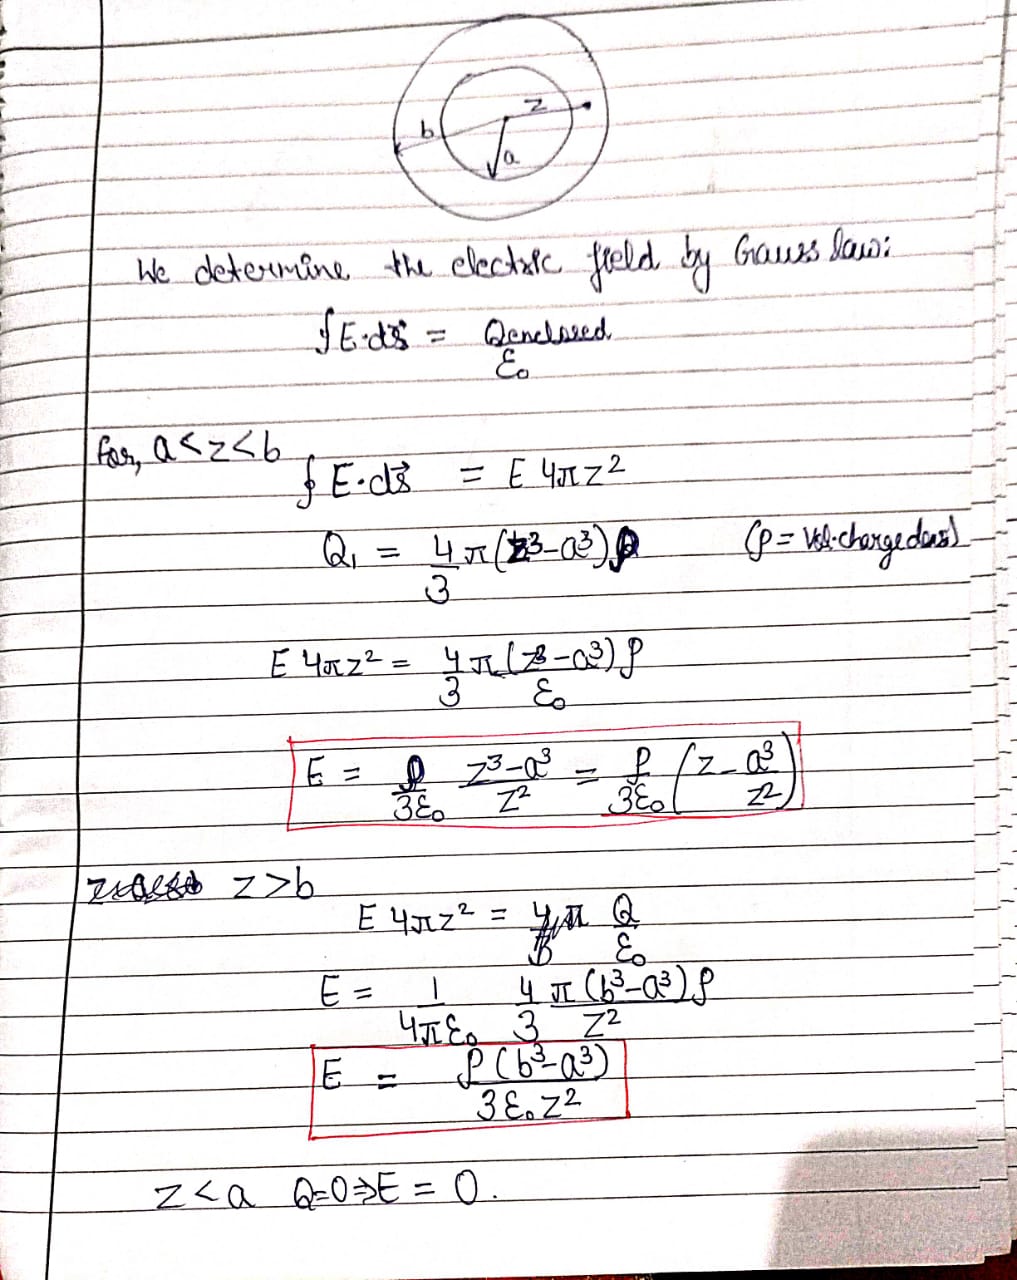 z
b
a
We determine the electric field by Gauss law:
∮E·ds⃗ = Qenclosed/ε₀
for, a<z<b
∮E·ds⃗ = E 4πz²
Q₁ = 4/3 π(z³-a³)ρ (ρ = Vol·chargedens)
E 4πz² = 4/3 π(z³-a³)ρ/ε₀
E = ρ/3ε₀ z³-a³/z² = ρ/3ε₀ (z - a³/z²)
z>b
E 4πz² = Q/ε₀
E = 1/4πε₀ 4/3 π(b³-a³)ρ/z²
E = ρ(b³-a³)/3ε₀z²
z<a Q=0⇒E = 0.